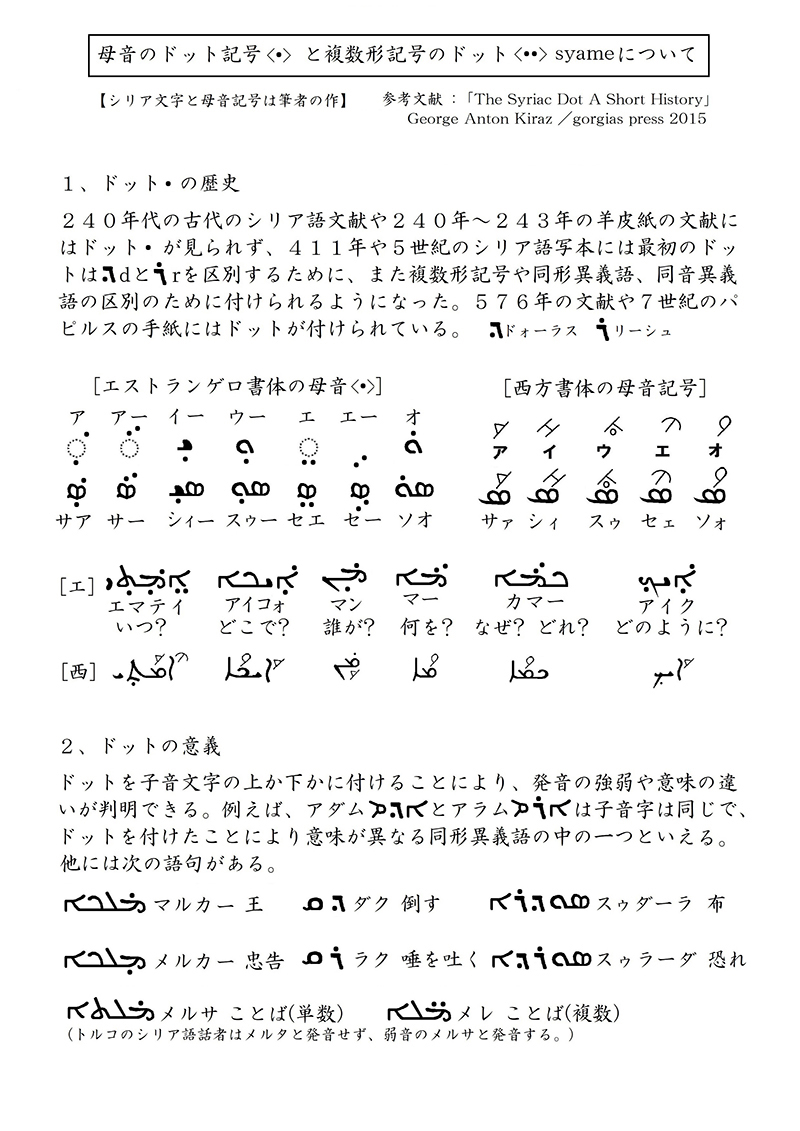 母音のドット記号〈•〉と複数形記号のドット〈••〉syameについて
【シリア文字と母音記号は筆者の作】
参考文献：「The Syriac Dot A Short History」
George Anton Kiraz／gorgias press 2015
１、ドット• の歴史
２４０年代の古代のシリア語文献や２４０年～２４３年の羊皮紙の文献に
はドット• が見られず、４１１年や５世紀のシリア語写本には最初のドッ
トはܕdとܪrを区別するために、また複数形記号や同形異義語、同音異義
語の区別のために付けられるようになった。５７６年の文献や７世紀のパ
ピルスの手紙にはドットが付けられている。 ܕドォーラス ܪリーシュ
[エストランゲロ書体の母音〈•〉]
ア アー イー ウー エ エー オ
サア サー シィー スゥー セエ セー ソオ
[西方書体の母音記号]
ア イ ウ エ オ
サァ シィ スゥ セェ ソォ
[エ]
エマテイ アイコォ マン マー カマー アイク
いつ? どこで? 誰が? 何を? なぜ? どれ? どのように?
[西]
２、ドットの意義
ドットを子音文字の上か下かに付けることにより、発音の強弱や意味の違
いが判明できる。例えば、アダムܐܕܡとアラムܐܪܡは子音字は同じで、
ドットを付けたことにより意味が異なる同形異義語の中の一つといえる。
他には次の語句がある。
ܡܠܟܐ マルカー 王 ܕܩ ダク 倒す ܣܘܕܪܐ スゥダーラ 布
ܡܠܟܐ メルカー 忠告 ܪܩ ラク 唾を吐く ܣܘܪܕܐ スゥラーダ 恐れ
ܡܠܬܐ メルサ ことば(単数) ܡܠܐ メレ ことば(複数)
（トルコのシリア語話者はメルタと発音せず、弱音のメルサと発音する。）